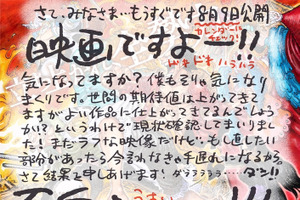 さて、みなさま…もうすぐです8月9日公開
映画ですよ──!!
カレンダーにチェック!
ドキドキハラハラ
気になってますか?僕もそりゃ気になり
まくりです。世間の期待値は上がってきて
ますがよい作品に仕上がってきてるんでしょう
か!?というわけで現状確認してまいりまし
た!まだラフな映像だけど…もし直したい
部分があったら今言わなきゃ手遅れになるから。
さて結果を申しあげます!ダララララララ……ダン!!